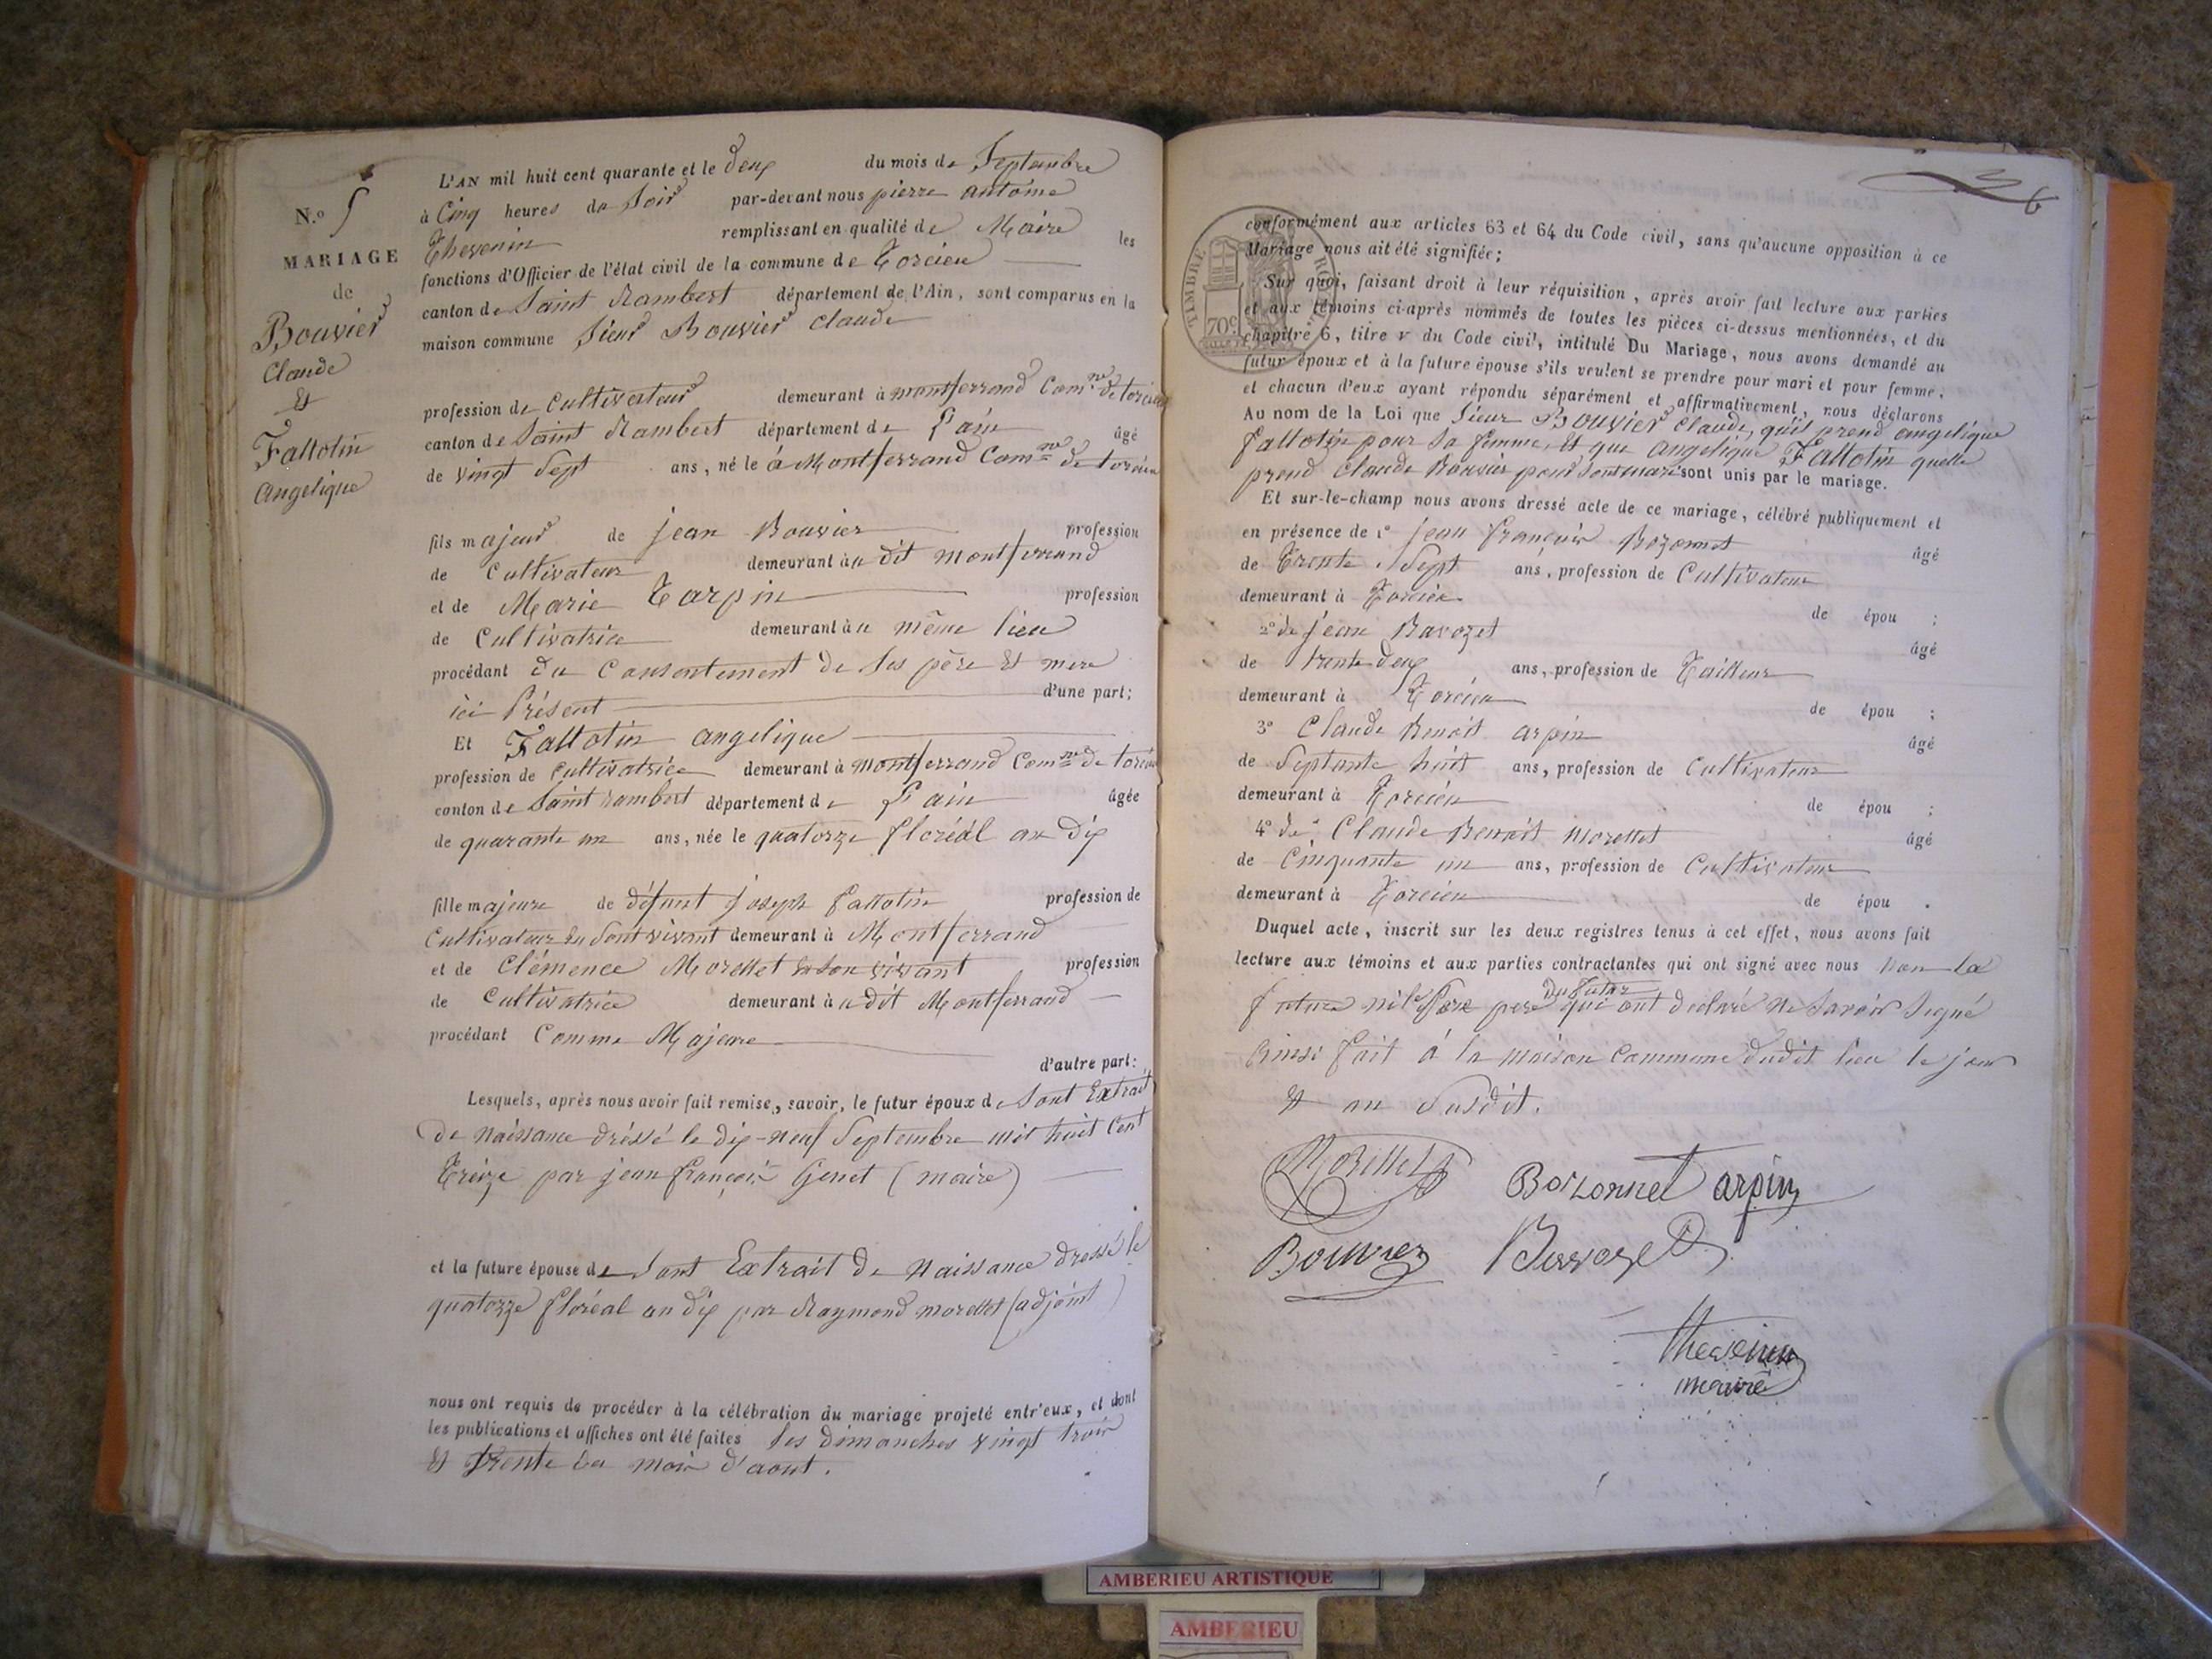 N.o 5
MARIAGE
de
Bouvier
Claude
Et
Fallotin
Angelique
L'AN mil huit cent quarante et le deux du mois de Septembre
à Cinq heures du Soir par-devant nous pierre antoine
Thevenin remplissant en qualité de Maire les
fonctions d'Officier de l'état civil de la commune de Torcieu
canton de Saint Rambert département de l'Ain, sont comparus en la
maison commune Sieur Bouvier Claude
profession de Cultivateur demeurant à montferrand Comne de torcieu
canton de Saint Rambert département de l'ain âgé
de vingt Sept ans, né le à Montferrand Comne de torcieu
fils majeur de jean Bouvier profession
de Cultivateur demeurant àu dit montferrand
et de Marie Tarpin profession
de Cultivatrice demeurant àu même lieu
procédant du Consentement de Ses père Et mere
ici Présent d'une part;
Et Fallotin angelique
profession de Cultivatrice demeurant à montferrand Comne de torcieu
canton de Saint rambert département de l'ain âgée
de quarante un ans, née le quatorze floréal an dix
fille majeure de défunt joseph fallotin profession de
Cultivateur En Sont vivant demeurant à Montferrand
et de Clémence Morellet En Son vivant profession
de Cultivatrice demeurant àu dit Montferrand
procédant Comme Majeure
d'autre part:
Lesquels, après nous avoir fait remise, savoir, le futur époux de Sont Extrait
De Naissance dréssé le dix-neuf Septembre mil huit Cent
Treize par jean françois Genet (maire)
et la future épouse de Sont Extrait de Naissance dressé le
quatorze floréal an dix par Raymond morellet (adjoint)
nous ont requis de procéder à la célébration du mariage projeté entr'eux, et dont
les publications et affiches ont été faites les dimanches vingt trois
Et trente du mois d'aout.
6
TIMBRE RO
70c
conformément aux articles 63 et 64 du Code civil, sans qu'aucune opposition à ce
Mariage nous ait été signifiée;
Sur quoi, faisant droit à leur réquisition, après avoir fait lecture aux parties
et aux témoins ci-après nommés de toutes les pièces ci-dessus mentionnées, et du
chapitre 6, titre v du Code civil, intitulé Du Mariage, nous avons demandé au
futur époux et à la future épouse s'ils veulent se prendre pour mari et pour femme,
et chacun d'eux ayant répondu séparément et affirmativement, nous déclarons
Au nom de la Loi que Sieur Bouvier Claude, qu'il prend angelique
fallotin pour Sa femme, Et que angelique Fallotin quelle
prend Claude Bouvier pour Sont mari sont unis par le mariage.
Et sur-le-champ nous avons dressé acte de ce mariage, célébré publiquement et
en présence de 1° jean françois Bozonnet âgé
de Trente Sept ans, profession de Cultivateur
demeurant à Torcieu de épou ;
2° de jean Bavozet âgé
de trente deux ans, profession de Tailleur
demeurant à Torcieu de épou ;
3° Claude Benoit arpin âgé
de Septante huit ans, profession de Cultivateur
demeurant à Torcieu de épou ;
4° de Claude Benoit Morellet âgé
de Cinquante un ans, profession de Cultivateur
demeurant à Torcieu de épou .
Duquel acte, inscrit sur les deux registres tenus à cet effet, nous avons fait
lecture aux témoins et aux parties contractantes qui ont signé avec nous Non la
du futur
future ni le pere qui ont declaré ne Savoir Signé
Ainsi fait à la maison Commune dudit lieu le jour
Et an Susdit.
Morellet Bozonnet arpin
Bouvier
thevenin
maire
AMBERIEU ARTISTIQUE
AMBERIEU